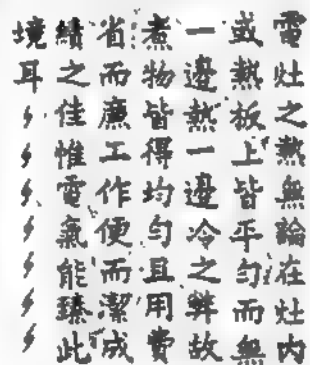 電灶之熱無論在灶内
或熱板上皆平勻而無
一邊熱一邊冷之弊故
煮物皆得均勻且用費
省而廉工作便而潔成
績之佳惟電氣能臻此
境耳